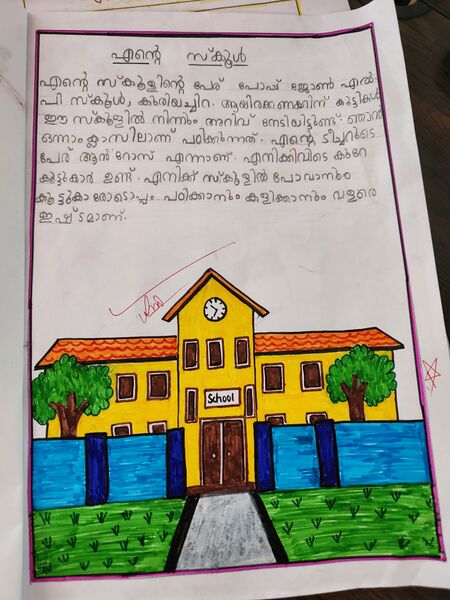 എന്റെ സ്കൂൾ
എന്റെ സ്കൂളിന്റെ പേര് പോപ്പ് ജോൺ എൽ
പി സ്കൂൾ, കരിയച്ചിറ. ആയിരക്കണക്കിന് കുട്ടികൾ
ഈ സ്കൂളിൽ നിന്നും അറിവ് നേടിയിട്ടുണ്ട്. ഞാൻ
ഒന്നാം ക്ലാസിലാണ് പഠിക്കുന്നത്. എന്റെ ടീച്ചറുടെ
പേര് ആൻ റോസ് എന്നാണ്. എനിക്കിവിടെ കുറേ
കൂട്ടുകാർ ഉണ്ട്. എനിക്ക് സ്കൂളിൽ പോവാനും
കൂട്ടുകാരോടൊപ്പം പഠിക്കാനും കളിക്കാനും വളരെ
ഇഷ്ടമാണ്.
School